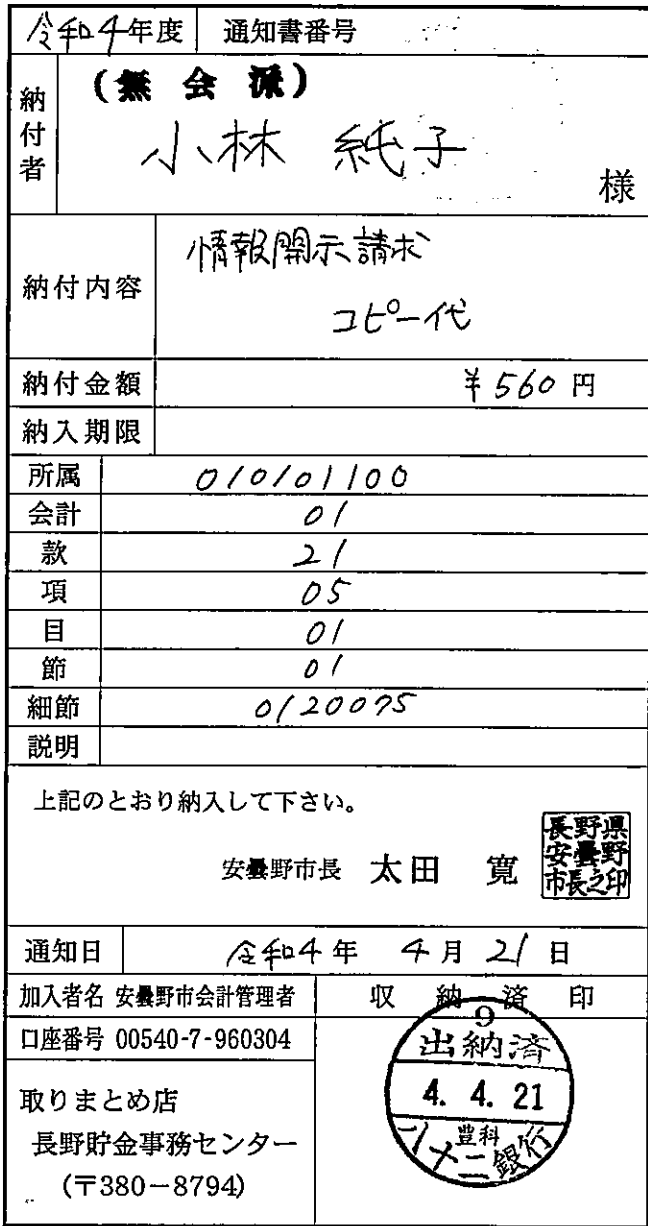 令和4年度 通知書番号
納付者 (無会派)
小林 純子 様
納付内容 情報開示請求
コピー代
納付金額 ¥560円
納入期限
所属 010101100
会計 01
款 21
項 05
目 01
節 01
細節 0120075
説明
上記のとおり納入して下さい。
安曇野市長 太田 寛
長野県
安曇野
市長之印
通知日 令和4年 4月 21日
加入者名 安曇野市会計管理者
口座番号 00540-7-960304
取りまとめ店
長野貯金事務センター
(〒380-8794)
収納済印
9
出納済
4. 4. 21
豊科
八十二銀行